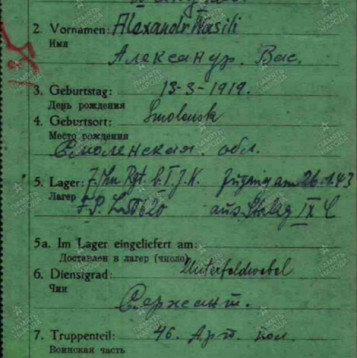 2. Vornamen: Alexandr Wasili
Имя
Александр. Вас.
3. Geburtstag: 13-3-1919.
День рождения
4. Geburtsort: Smolensk
Место рождения
Смоленская. обл.
5. Lager: Zugang am 26.1.43
Лагер aus Stalag IX C
5a. Im Lager eingeliefert am:
Доставлен в лагер (число)
6. Dienstgrad: Unterfeldwebel
Чин
Сержант.
7. Truppenteil: 46. Арт. пол.
Воинская часть